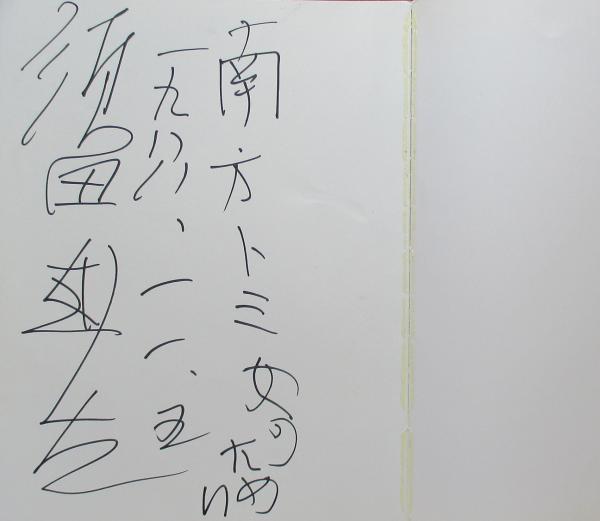 南方トミ女のために
一九八八、一一、五
須田剋太